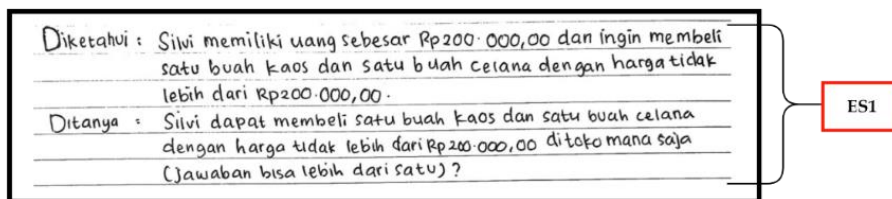 Diketahui : Silvi memiliki uang sebesar Rp200.000,00 dan ingin membeli
satu buah kaos dan satu buah celana dengan harga tidak
lebih dari Rp200.000,00.
Ditanya : Silvi dapat membeli satu buah kaos dan satu buah celana
dengan harga tidak lebih dari Rp200.000,00 ditoko mana saja
(Jawaban bisa lebih dari satu)?
ES1